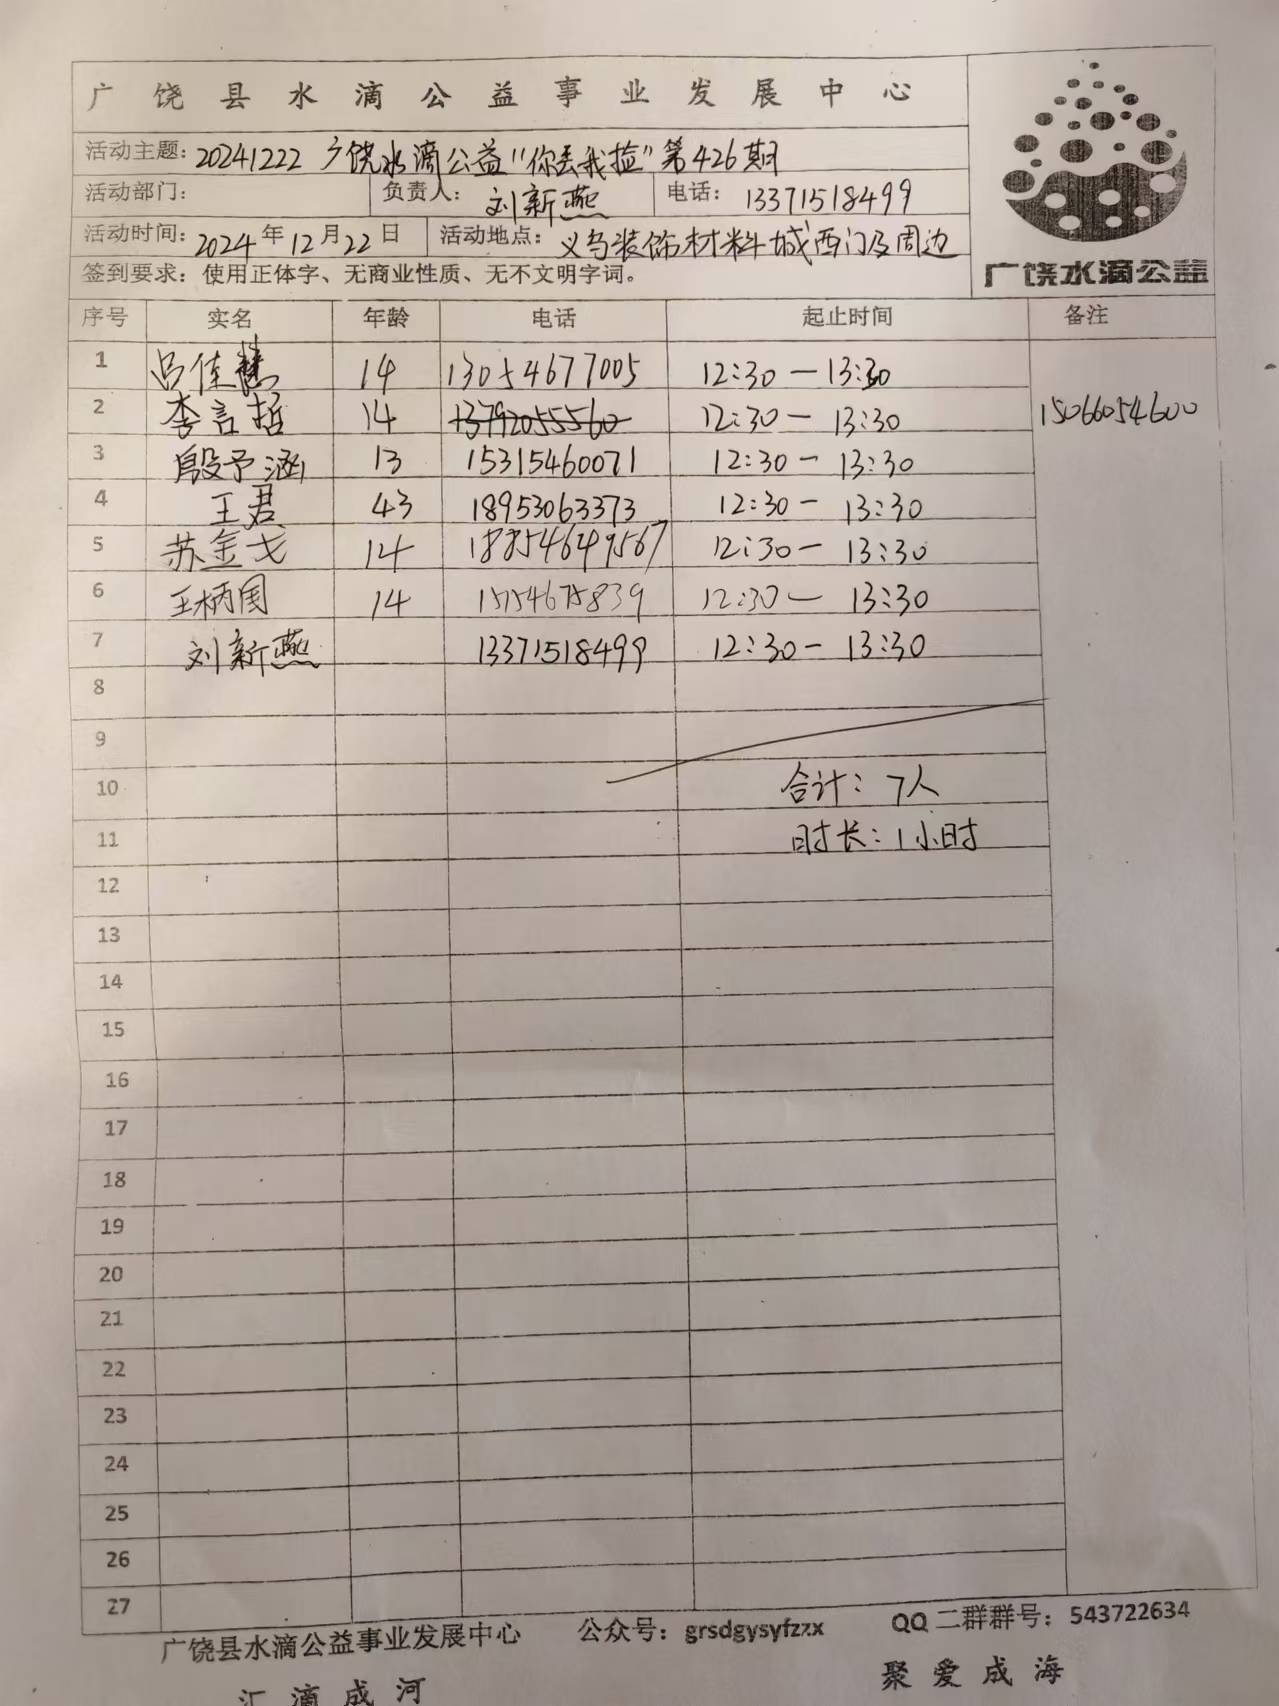 广饶县水滴公益事业发展中心
活动主题：20241222 广饶水滴公益"你丢我捡"第426期
活动部门： 负责人：刘新燕 电话：13371518499
活动时间：2024年12月22日 活动地点：义乌装饰材料城西门及周边
签到要求：使用正体字、无商业性质、无不文明字词。
广饶水滴公益
序号 实名 年龄 电话 起止时间 备注
1 吕佳慧 14 13054677005 12:30—13:30
2 李言哲 14 13792055560 12:30—13:30 15066054600
3 殷予涵 13 15315460071 12:30—13:30
4 王君 43 18953063373 12:30—13:30
5 苏金戈 14 18854649567 12:30—13:30
6 王柄国 14 15154675839 12:30—13:30
7 刘新燕 13371518499 12:30—13:30
8
9
10 合计：7人
11 时长：1小时
12
13
14
15
16
17
18
19
20
21
22
23
24
25
26
27
广饶县水滴公益事业发展中心 公众号：grsdgysyfzzx QQ二群群号：543722634
汇滴成河 聚爱成海